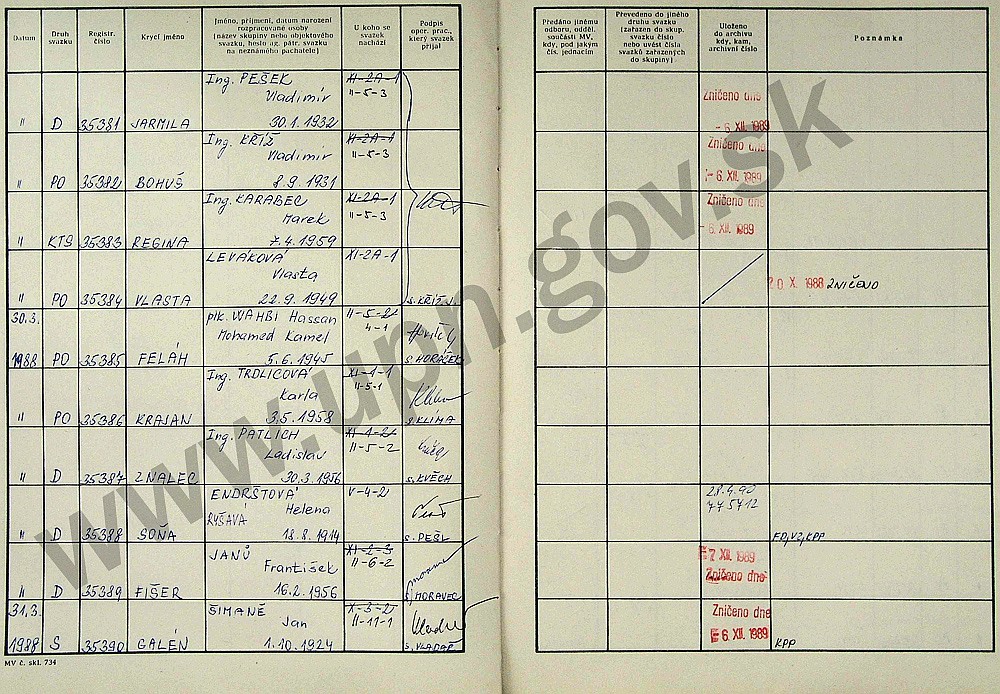 Datum
Druh svazku
Registr. číslo
Krycí jméno
Jméno, příjmení, datum narození rozpracované osoby (název skupiny nebo objektového svazku, heslo ag. pátr. svazku na neznámého pachatele)
U koho se svazek nachází
Podpis oper. prac., který svazek přijal
Předáno jinému odboru, odděl. součásti MV, kdy, pod jakým čís. jednacím
Převedeno do jiného druhu svazku (zařazen do skup. svazku číslo nebo uvést čísla svazků zařazených do skupiny)
Uloženo do archivu kdy, kam, archivní číslo
Poznámka
Ing. PEŠEK XI-2A-1
Vladimír II-5-3 Zničeno dne
" D 35381 JARMILA 30.1.1932 - 6. XII. 1989
Ing. KŘÍŽ XI-2A-1 Zničeno dne
Vladimír II-5-3
" PO 35382 BOHUŠ 8.9.1931 - 6. XII. 1989
Ing. KARABEC XI-2A-1 Zničeno dne
Marek II-5-3
" KTS 35383 REGINA 7.4.1959 - 6. XII. 1989
LEVÁKOVÁ XI-2A-1
Vlasta 20 X. 1988 ZNIČENO
" PO 35384 VLASTA 22.9.1949 s. KŘÍŽ
30.3. plk. WAHBI Hassan II-5-2
Mohamed Kamel 4-1
1988 PO 35385 FELÁH 5.6.1945 s. HORÁČEK
Ing. TRDLICOVÁ XI-1-1
Karla II-5-1
" PO 35386 KRAJAN 3.5.1958 s. KLÍMA
Ing. PATLICH XI-4-2
Ladislav II-5-2
" D 35387 ZNALEC 30.3.1956 s. KVĚCH
ENDRŠTOVÁ V-4-2 28.4.90
RYŠAVÁ Helena 775712
" D 35388 SOŇA 18.8.1914 s. PEŠL FD, VZ, KPP
JANŮ XI-2-3 7 XII. 1989
František II-6-2 Zničeno dne
" D 35389 FIŠER 16.2.1956 s. MORAVEC
31.3. ŠIMANĚ X-3-2 Zničeno dne
Jan II-11-1
1988 S 35390 GALÉN 1.10.1924 s. VLADAŘ 6. XII. 1989 KPP
MV č. skl. 734
www.upn.gov.sk